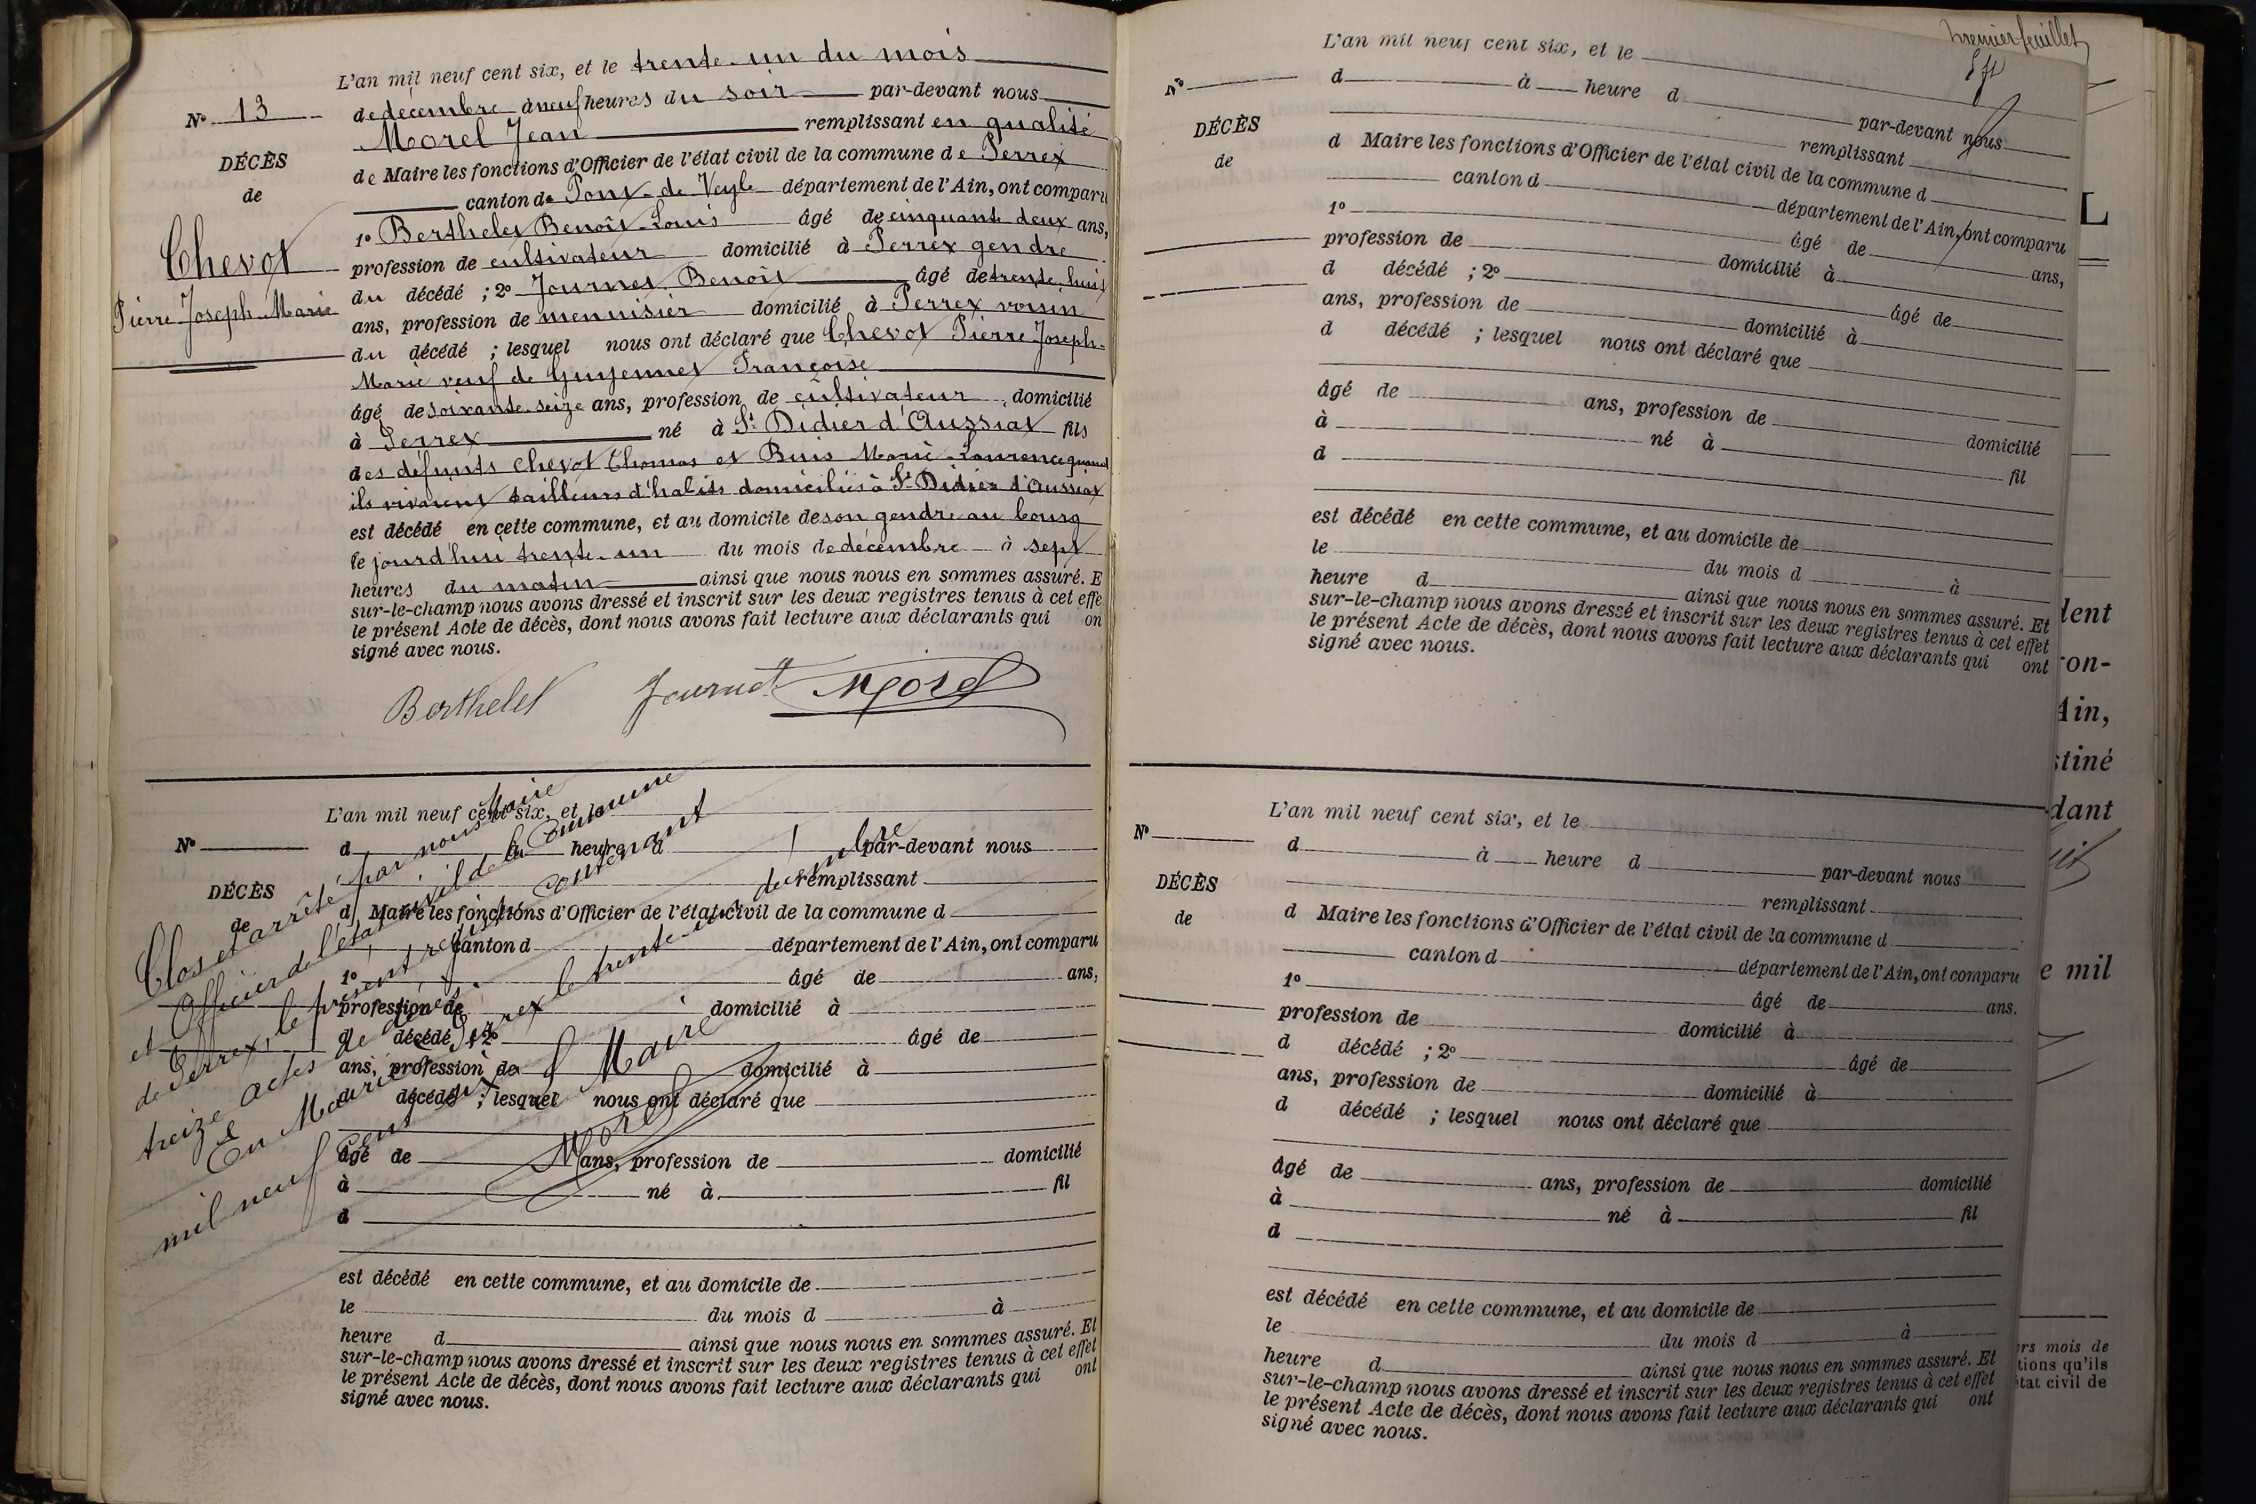 L'an mil neuf cent six, et le trente-un du mois
N° 13
de décembre à neuf heures du soir par-devant nous
Morel Jean remplissant en qualité
DÉCÈS
de
Chevot
Pierre Joseph-Marie
de Maire les fonctions d'Officier de l'état civil de la commune de Perrex
canton de Pont-de-Veyle département de l'Ain, ont comparu
1° Berthelet Benoît-Louis âgé de cinquante deux ans,
profession de cultivateur domicilié à Perrex gendre
du décédé ; 2° Journet Benoît âgé de trente-huit
ans, profession de menuisier domicilié à Perrex voisin
du décédé ; lesquel nous ont déclaré que Chevot Pierre Joseph-
Marie veuf de Guyennet Françoise
âgé de soixante-seize ans, profession de cultivateur domicilié
à Perrex né à St Didier d'Aussiat fils
des défunts Chevot Thomas et Buis Marie-Laurence quand
ils vivaient tailleurs d'habits domiciliés à St Didier d'Aussiat
est décédé en cette commune, et au domicile de son gendre au bourg
le jourd'hui trente-un du mois de décembre à sept
heures du matin ainsi que nous nous en sommes assuré. E
sur-le-champ nous avons dressé et inscrit sur les deux registres tenus à cet effe
le présent Acte de décès, dont nous avons fait lecture aux déclarants qui on
signé avec nous.
Berthelet Journet Morel
L'an mil neuf cent six, et le
N°
d à heure d par-devant nous
remplissant
DÉCÈS
de
d Maire les fonctions d'Officier de l'état civil de la commune d
canton d département de l'Ain, ont comparu
1° âgé de ans,
profession de domicilié à
d décédé ; 2° âgé de
ans, profession de domicilié à
d décédé ; lesquel nous ont déclaré que
âgé de ans, profession de domicilié
à né à fil
d
est décédé en cette commune, et au domicile de
le du mois d à
heure d ainsi que nous nous en sommes assuré. Et
sur-le-champ nous avons dressé et inscrit sur les deux registres tenus à cet effet
le présent Acte de décès, dont nous avons fait lecture aux déclarants qui ont
signé avec nous.
Clos et arrêté par nous Maire
et Officier de l'état civil de la Commune
de Perrex, le présent registre contenant
treize actes de décès.
En Mairie à Perrex le trente-un décembre
mil neuf cent six
Le Maire
Morel
premier feuillet
L'an mil neuf cent six, et le
N°
d à heure d
par-devant nous
remplissant
DÉCÈS
de
d Maire les fonctions d'Officier de l'état civil de la commune d
canton d département de l'Ain, ont comparu
1° âgé de ans,
profession de domicilié à
d décédé ; 2° âgé de
ans, profession de domicilié à
d décédé ; lesquel nous ont déclaré que
âgé de ans, profession de domicilié
à né à fil
d
est décédé en cette commune, et au domicile de
le du mois d à
heure d ainsi que nous nous en sommes assuré. Et
sur-le-champ nous avons dressé et inscrit sur les deux registres tenus à cet effet
le présent Acte de décès, dont nous avons fait lecture aux déclarants qui ont
signé avec nous.
L'an mil neuf cent six, et le
N°
d à heure d par-devant nous
remplissant
DÉCÈS
de
d Maire les fonctions d'Officier de l'état civil de la commune d
canton d département de l'Ain, ont comparu
1° âgé de ans.
profession de domicilié à
d décédé ; 2° âgé de
ans, profession de domicilié à
d décédé ; lesquel nous ont déclaré que
âgé de ans, profession de domicilié
à né à fil
d
est décédé en cette commune, et au domicile de
le du mois d à
heure d ainsi que nous nous en sommes assuré. Et
sur-le-champ nous avons dressé et inscrit sur les deux registres tenus à cet effet
le présent Acte de décès, dont nous avons fait lecture aux déclarants qui ont
signé avec nous.
L
dent
ron-
Ain,
stiné
dant
e mil
ers mois de
tions qu'ils
état civil de